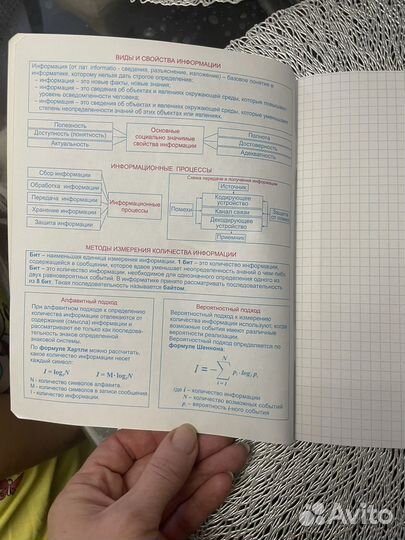 ВИДЫ И СВОЙСТВА ИНФОРМАЦИИ
Информация (от лат. informatio - сведения, разъяснение, изложение) – базовое понятие в
информатике, которому нельзя дать строгое определение:
- информация – это новые факты, новые знания;
- информация – это сведения об объектах и явлениях окружающей среды, которые повышают
уровень осведомленности человека;
- информация – это сведения об объектах и явлениях окружающей среды, которые уменьшают
степень неопределенности знаний об этих объектах или явлениях.
Полезность
Доступность (понятность)
Актуальность
Основные
социально значимые
свойства информации
Полнота
Достоверность
Адекватность
ИНФОРМАЦИОННЫЕ ПРОЦЕССЫ
Сбор информации
Обработка информации
Передача информации
Хранение информации
Защита информации
Информационные
процессы
Схема передачи и получения информации
Источник
Кодирующее
устройство
Помехи
Канал связи
Защита
от помех
Декодирующее
устройство
Приемник
МЕТОДЫ ИЗМЕРЕНИЯ КОЛИЧЕСТВА ИНФОРМАЦИИ
Бит – наименьшая единица измерения информации. 1 бит – это количество информации,
содержащейся в сообщении, которое вдвое уменьшает неопределенность знаний о чем-либо.
Бит – это количество информации, необходимое для однозначного определения одного из
двух равновероятных событий. В информатике принято рассматривать последовательность
из 8 бит. Такая последовательность называется байтом.
Алфавитный подход
При алфавитном подходе к определению
количества информации отвлекаются от
содержания (смысла) информации и
рассматривают ее только как последова-
тельность знаков определенной
знаковой системы.
По формуле Хартли можно рассчитать,
какое количество информации несет
каждый символ:
I = log₂N I = M·log₂N
N - количество символов алфавита.
M - количество символов в записи сообщения
I - количество информации.
Вероятностный подход
Вероятностный подход к измерению
количества информации используют, когда
возможные события имеют различные
вероятности реализации.
Вероятностный подход определяется по
формуле Шеннона.
I = −∑ᵢ₌₁ᴺ pᵢ · log₂ pᵢ
где I – количество информации
N – количество возможных событий
pᵢ – вероятность i-ного события
Avito